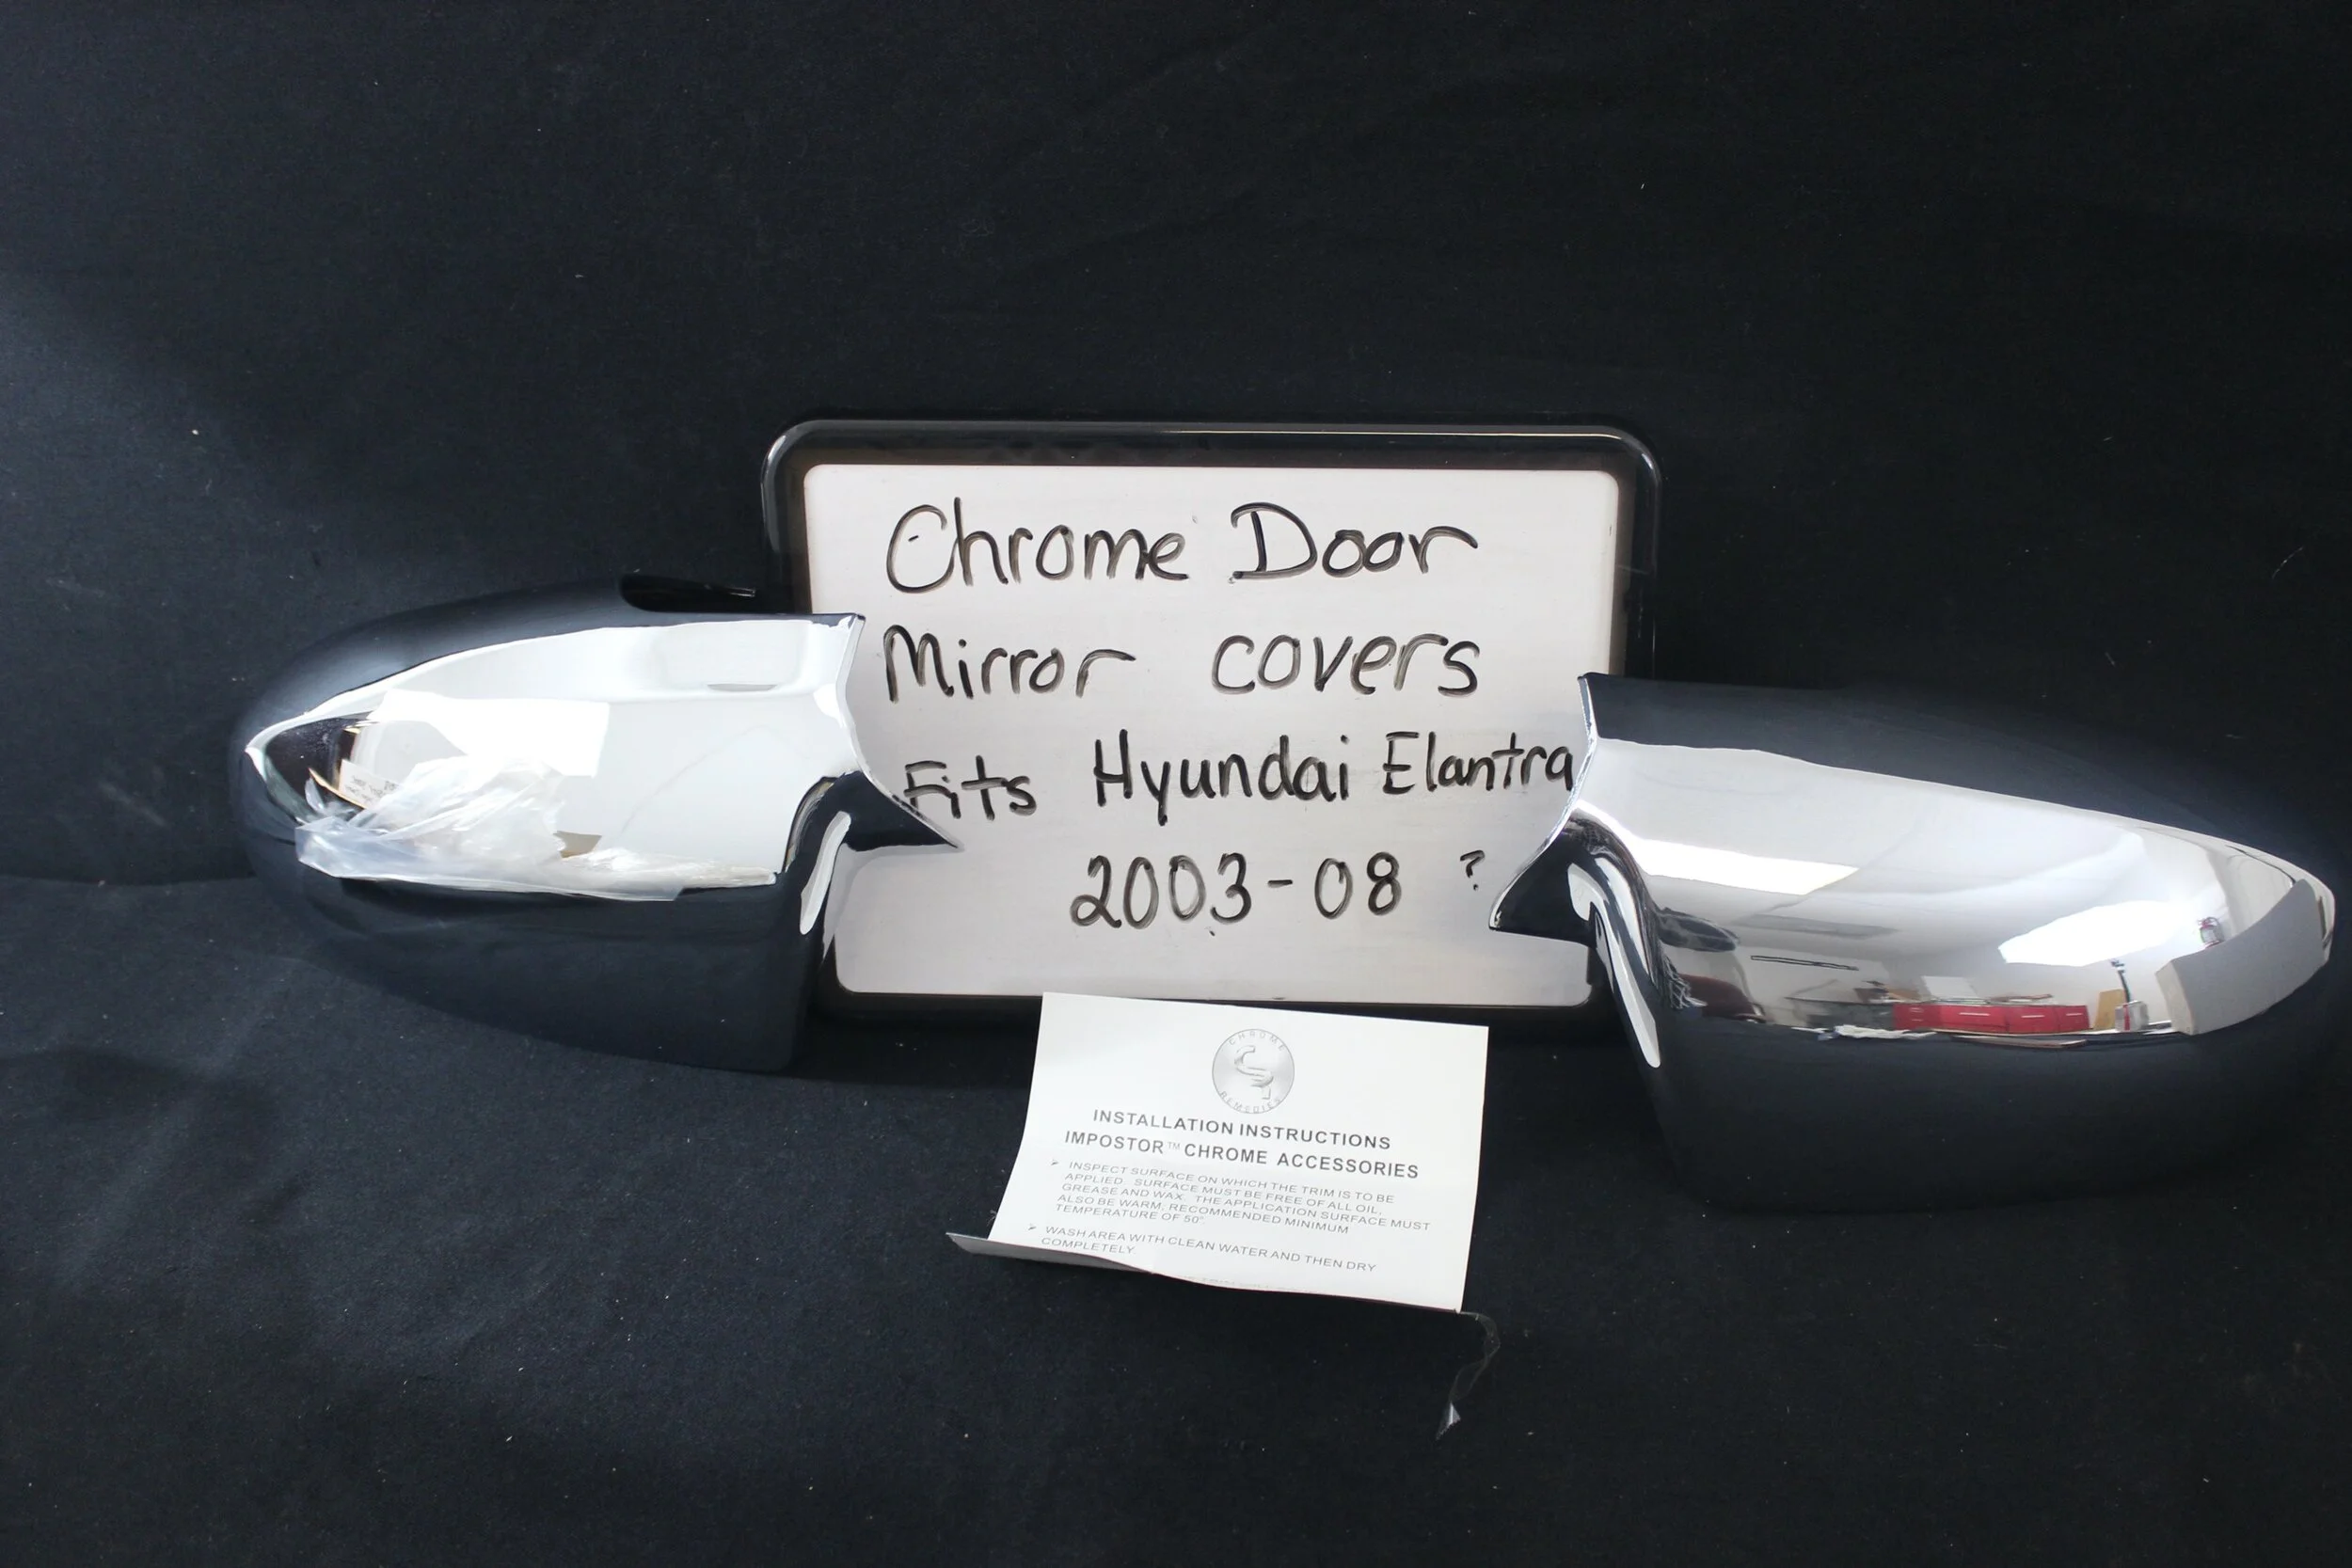 Chrome Door
Mirror covers
Fits Hyundai Elantra
2003-08 ?
CHROME
REMEDIES
INSTALLATION INSTRUCTIONS
IMPOSTOR™ CHROME ACCESSORIES
➢ INSPECT SURFACE ON WHICH THE TRIM IS TO BE
APPLIED. SURFACE MUST BE FREE OF ALL OIL,
GREASE AND WAX. THE APPLICATION SURFACE MUST
ALSO BE WARM, RECOMMENDED MINIMUM
TEMPERATURE OF 50°.
➢ WASH AREA WITH CLEAN WATER AND THEN DRY
COMPLETELY